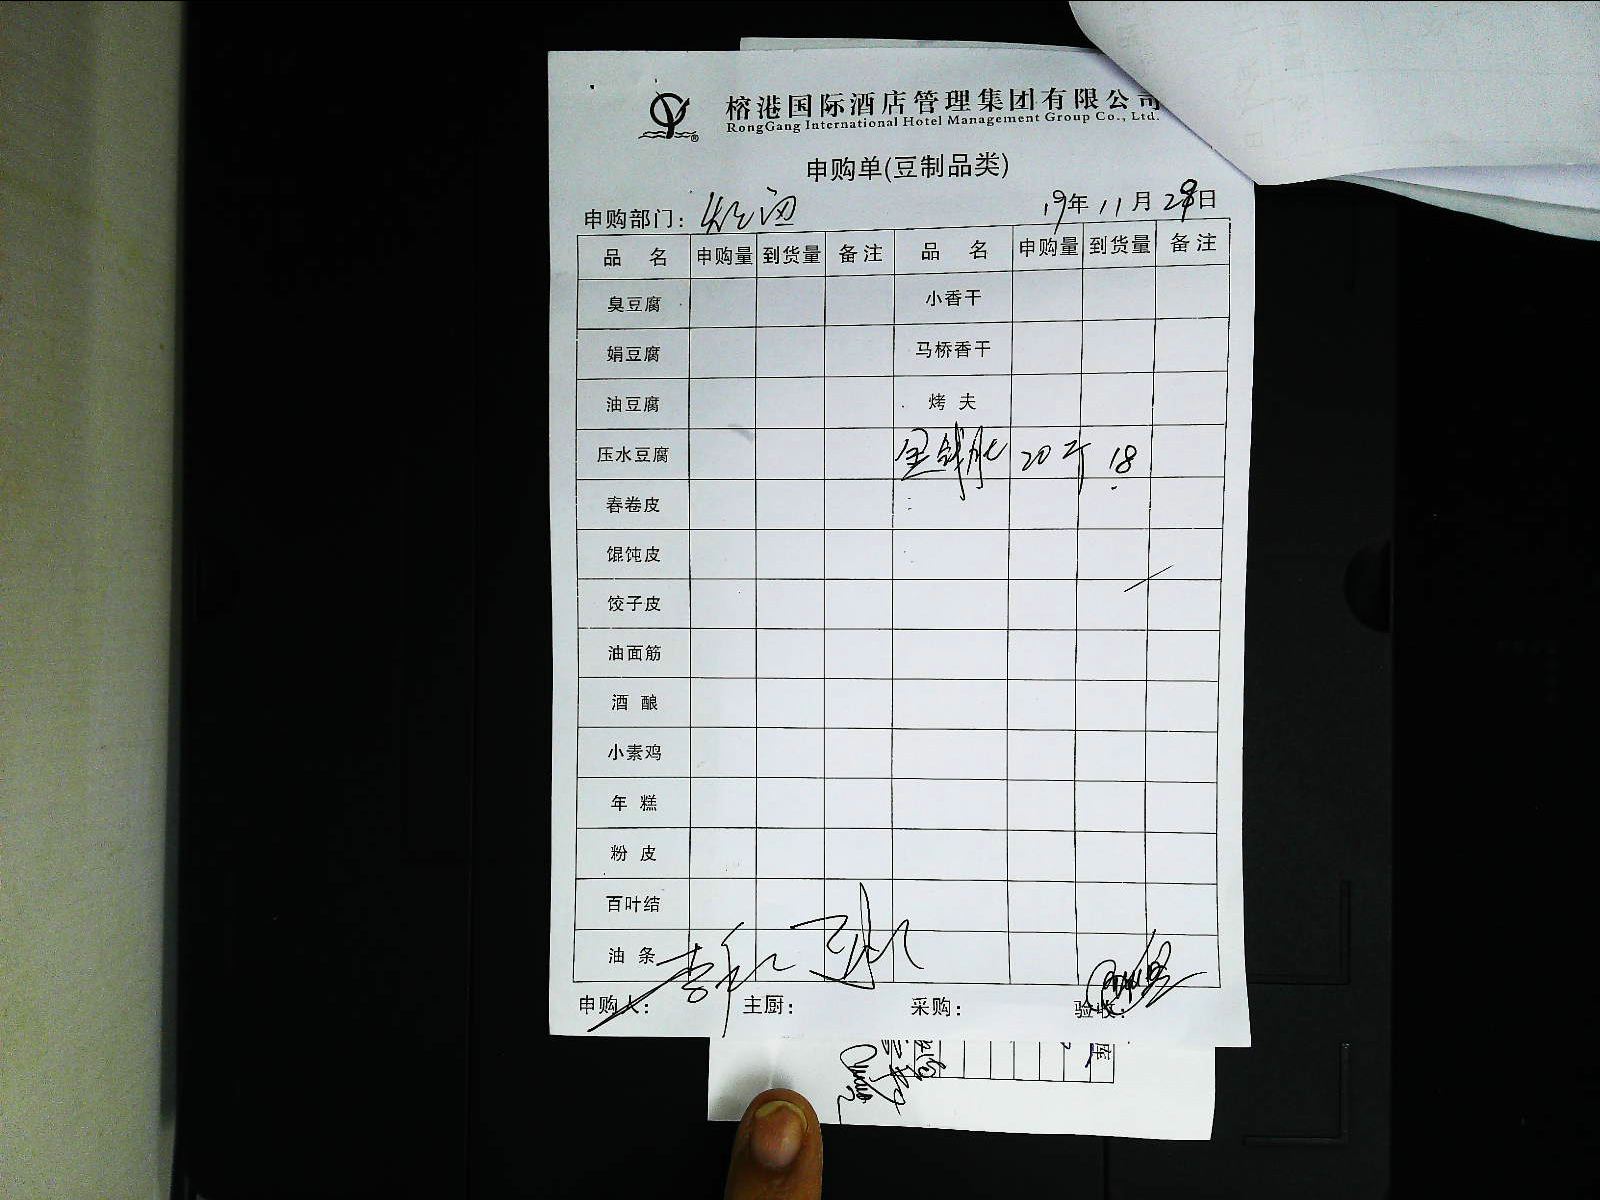 榕港国际酒店管理集团有限公司
RongGang International Hotel Management Group Co., Ltd.
申购单(豆制品类)
申购部门: 19年 11月 29日
品 名 申购量 到货量 备注 品 名 申购量 到货量 备注
臭豆腐 小香干
娟豆腐 马桥香干
油豆腐 烤 夫
压水豆腐 金钱肚 20斤 18
春卷皮
馄饨皮
饺子皮
油面筋
酒 酿
小素鸡
年 糕
粉 皮
百叶结
油 条
申购人: 主厨: 采购: 验收:
库